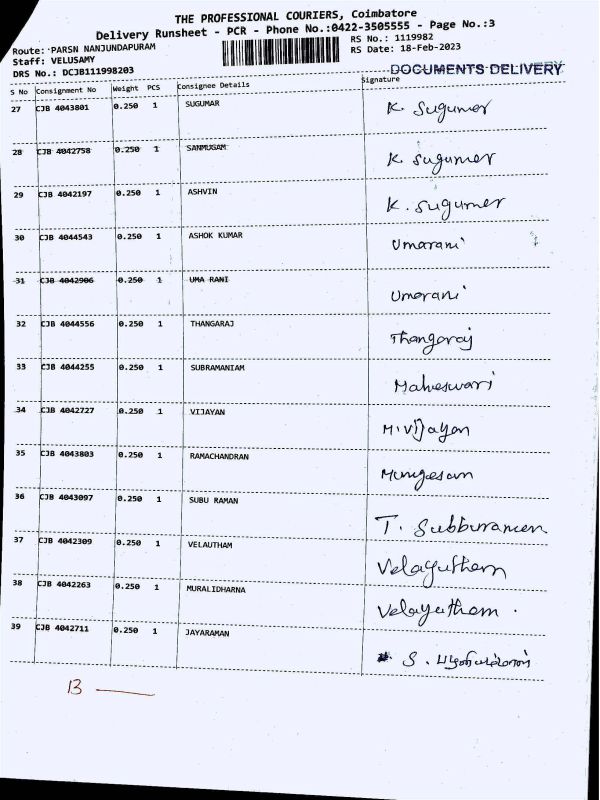 THE PROFESSIONAL COURIERS, Coimbatore
Delivery Runsheet - PCR - Phone No.:0422-3505555 - Page No.:3
Route: PARSN NANJUNDAPURAM
RS No.: 1119982
Staff: VELUSAMY
RS Date: 18-Feb-2023
DRS No.: DCJB111998203
DOCUMENTS DELIVERY
S No Consignment No Weight PCS Consignee Details Signature
27 CJB 4043801 0.250 1 SUGUMAR K. Sugumar
28 CJB 4042758 0.250 1 SANMUGAM K. Sugumar
29 CJB 4042197 0.250 1 ASHVIN K. Sugumar
30 CJB 4044543 0.250 1 ASHOK KUMAR Umarani
31 CJB 4042906 0.250 1 UMA RANI Umarani
32 CJB 4044556 0.250 1 THANGARAJ Thangaraj
33 CJB 4044255 0.250 1 SUBRAMANIAM Maheswari
34 CJB 4042727 0.250 1 VIJAYAN M.Vijayan
35 CJB 4043803 0.250 1 RAMACHANDRAN Murugesan
36 CJB 4043097 0.250 1 SUBU RAMAN T. Subburaman
37 CJB 4042309 0.250 1 VELAUTHAM Velayutham
38 CJB 4042263 0.250 1 MURALIDHARNA Velayutham.
39 CJB 4042711 0.250 1 JAYARAMAN S.
13 —